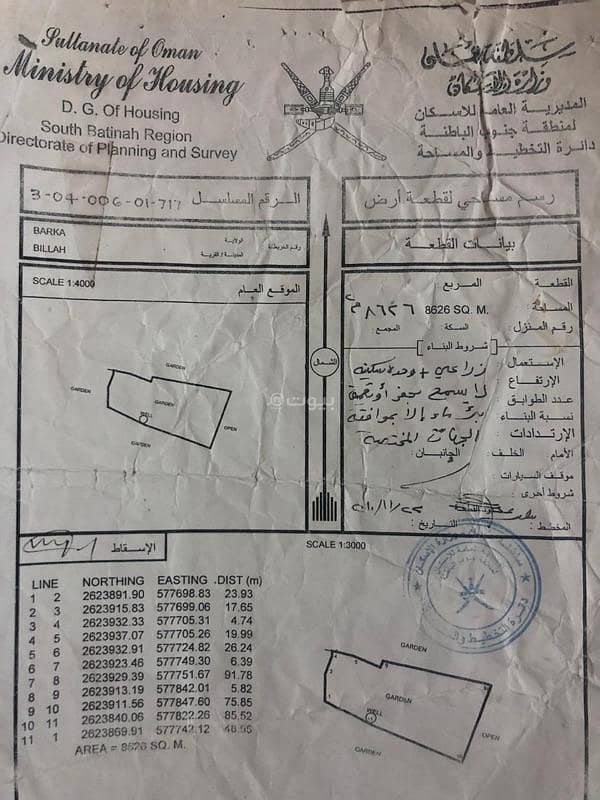 Sultanate of Oman
Ministry of Housing
D. G. Of Housing
South Batinah Region
Directorate of Planning and Survey
سلطنة عمان
وزارة الإسكان
المديرية العامة للاسكان
لمنطقة جنوب الباطنة
دائرة التخطيط والمساحة
3-04-006-01-717 الرقم المسلسل
رسم مساحي لقطعة أرض
BARKA الولاية
BILLAH المدينة / القرية
رقم الخريطة
بيانات القطعة
SCALE 1:4000 الموقع العام
GARDEN
GARDEN
GARDEN
WELL
OPEN
GARDEN
الشمال
القطعة : المربع
المساحة : 8626 SQ. M. ٨٦٢٦ م٢
رقم المنزل : السكة : المجمع
شروط البناء
الإستعمال : زراعي + وحدة سكنية
الإرتفاع : لا يسمح بحفر أو تعميق
عدد الطوابق :
نسبة البناء : بئر ماء إلا بموافقة
الإرتدادات : الجهات المختصة
الأمام : الخلف : الجانبان :
موقف السيارات :
شروط أخرى :
المخطط : التاريخ :
الإسقاط
SCALE 1:3000
LINE NORTHING EASTING .DIST (m)
1 2 2623891.90 577698.83 23.93
2 3 2623915.83 577699.06 17.65
3 4 2623932.33 577705.31 4.74
4 5 2623937.07 577705.26 19.99
5 6 2623932.91 577724.82 26.24
6 7 2623923.46 577749.30 6.39
7 8 2623929.39 577751.67 91.78
8 9 2623913.19 577842.01 5.82
9 10 2623911.56 577847.60 75.85
10 11 2623840.06 577822.26 85.52
11 1 2623869.91 577742.12
AREA = 8626 SQ. M.
GARDEN
GARDEN
WELL
OPEN
GARDEN
بيوت